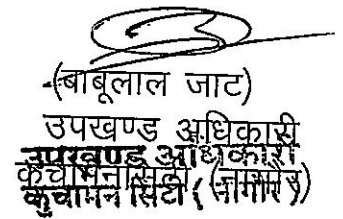 (बाबूलाल जाट)
उपखण्ड अधिकारी
उपखण्ड अधिकारी
कुचामनसिटी (नागौर)
कुचामन सिटी ( नागौर )